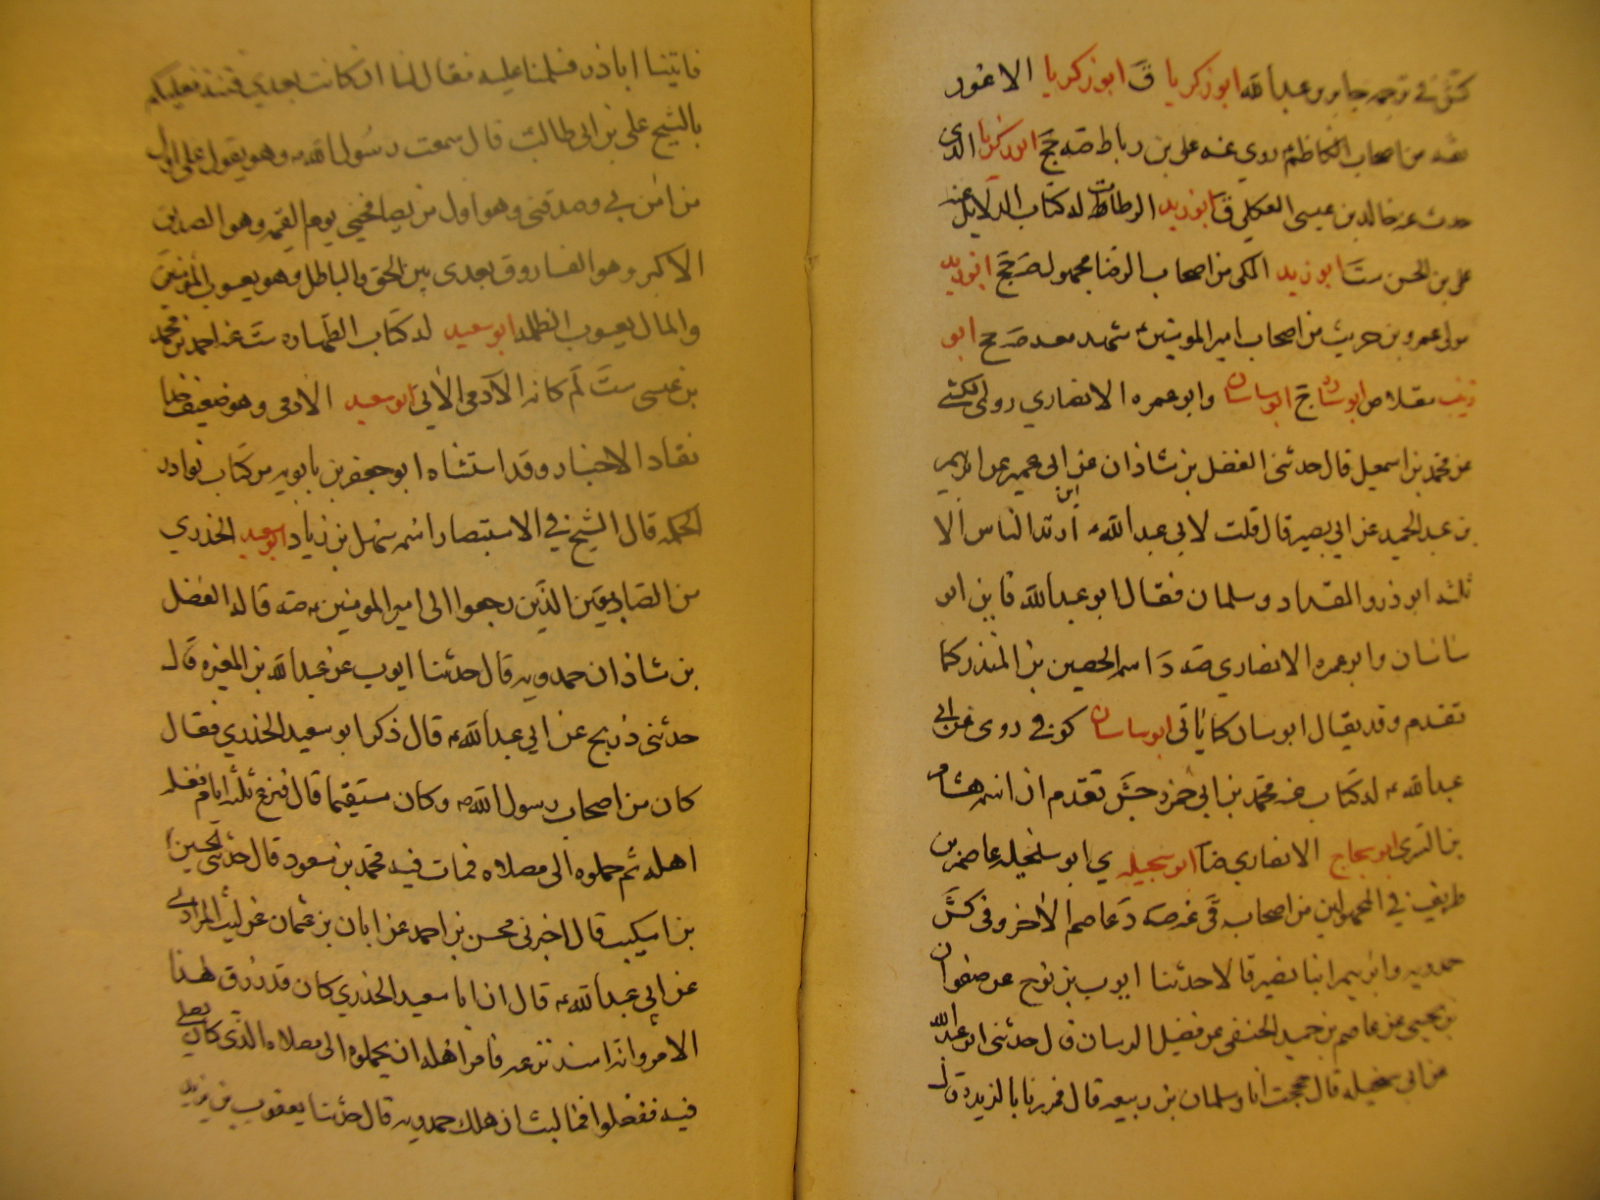 كش في ترجمة جابر بن عبد الله ابو زكريا ق ابو زكريا الاعور
ثقة من اصحاب الكاظم روى عنه علي بن رباط صه جخ ابو زكريا الذي
حدث عنه خالد بن عيسى العكلي ق ابو زيد الرطاب له كتاب الدلايل عنه
علي بن الحسن ست ابو زيد المكي من اصحاب الرضا مجهول صه جخ ابو زيد
مولى عمرو بن حريث من اصحاب امير المومنين شهد معه صه جخ ابو
زينب مقلاص ابو ساسان وابو عمره الانصاري روى الكشي
عن محمد بن اسمعيل قال حدثني الفضل بن شاذان عن ابن ابي عمير عن ابرهيم
بن عبد الحميد عن ابي بصير قال قلت لابي عبد الله ارتد الناس الا
ثلثه ابو ذر والمقداد وسلمان فقال ابو عبد الله فاين ابو
ساسان وابو عمره الانصاري صه د اسمه الحصين بن المنذر كما
تقدم وقد يقال ابو سان كما ياتي ابو ساسان كوفي روى عن ابي
عبد الله له كتاب عنه محمد بن ابي حمزه جش تقدم ان اسمه هشام
بن السري ابو سجاح الانصاري ضا ابو سخيله ي ابو سخيله عاصم بن
طريف في المجهولين من اصحاب ق صه د عاصم الاخر وفي كش
حمدويه وابرهيم ابنا نصير قالا حدثنا ايوب بن نوح عن صفوان
بن يحيى عن عاصم بن حميد الحنفي عن فضيل الرسان قال حدثني ابو عبد الله
عن ابي سخيله قال حججت انا وسلمان بن ربيعه قال فمررنا بالربذه قال
فاتينا ابا ذر فسلمنا عليه فقال لنا ان كانت بعدي فتنة فعليكم
بالشيخ علي بن ابي طالب قال سمعت رسول الله وهو يقول علي اول
من امن بي وصدقني وهو اول من يصافحني يوم القيمه وهو الصديق
الاكبر وهو الفاروق بعدي بين الحق والباطل وهو يعسوب المومنين
والمال يعسوب الظلمه ابو سعيد له كتاب الطهاره ست عنه احمد بن محمد
بن عيسى ست لم كانه الآدمي الآتي ابو سعيد الآدمي وهو ضعيف
نقاد الاخبار وقد استثناه ابو جعفر بن بابويه من كتاب نوادر
الحكمه قال الشيخ في الاستبصار اسمه سهل بن زياد ابو سعيد الخدري
من السابقين الذين رجعوا الى امير المومنين صه قاله الفضل
بن شاذان حمدويه قال حدثنا ايوب عن عبد الله بن المغيره قال
حدثني ذريح عن ابي عبد الله قال ذكر ابو سعيد الخدري فقال
كان من اصحاب رسول الله وكان مستقيما قال فنزع ثلثة ايام فغسله
اهله ثم حملوه الى مصلاه فمات فيه محمد بن مسعود قال حدثني الحسين
بن اسكيب قال اخبرني محسن بن احمد عن ابان بن عثمان عن ليث المرادي
عن ابي عبد الله قال ان ابا سعيد الخدري كان قد رزق هذا
الامر وانه اشتد نزعه فامر اهله ان يحملوه الى مصلاه الذي كان يصلي
فيه ففعلوا فما لبث ان هلك حمدويه قال حدثنا يعقوب بن يزيد